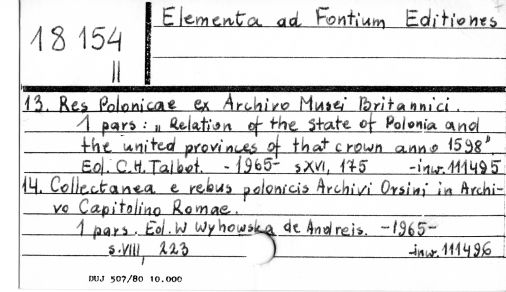 Elementa ad Fontium Editiones
18 154
II
13. Res Polonicae ex Archivo Musei Britannici.
1 pars: „Relation of the state of Polonia and
the united provinces of that crown anno 1598".
Ed. C.H. Talbot. -1965- s XVI, 175 -inw. 111495
14. Collectanea e rebus polonicis Archivi Orsini in Archi-
vo Capitolino Romae.
1 pars. Ed. W Wyhowska de Andreis. -1965-
s. VIII, 223 -inw. 111496
DUJ 507/80 10.000